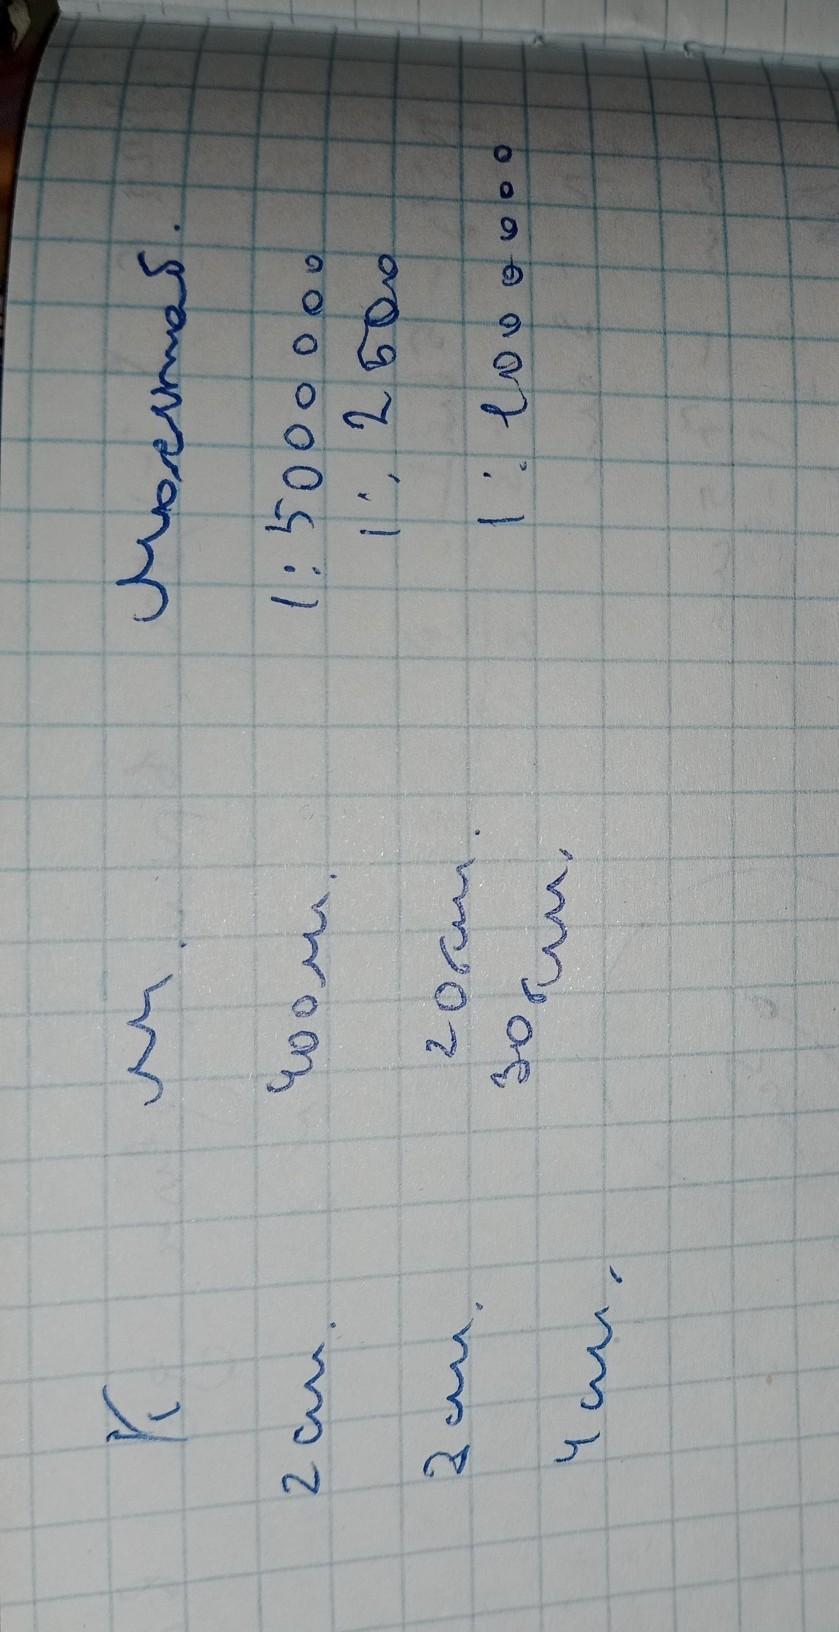 К М. Масштаб.
2см. 400м. 1:5000000
1:2500
20км.
30км. 1:1000000
4см.